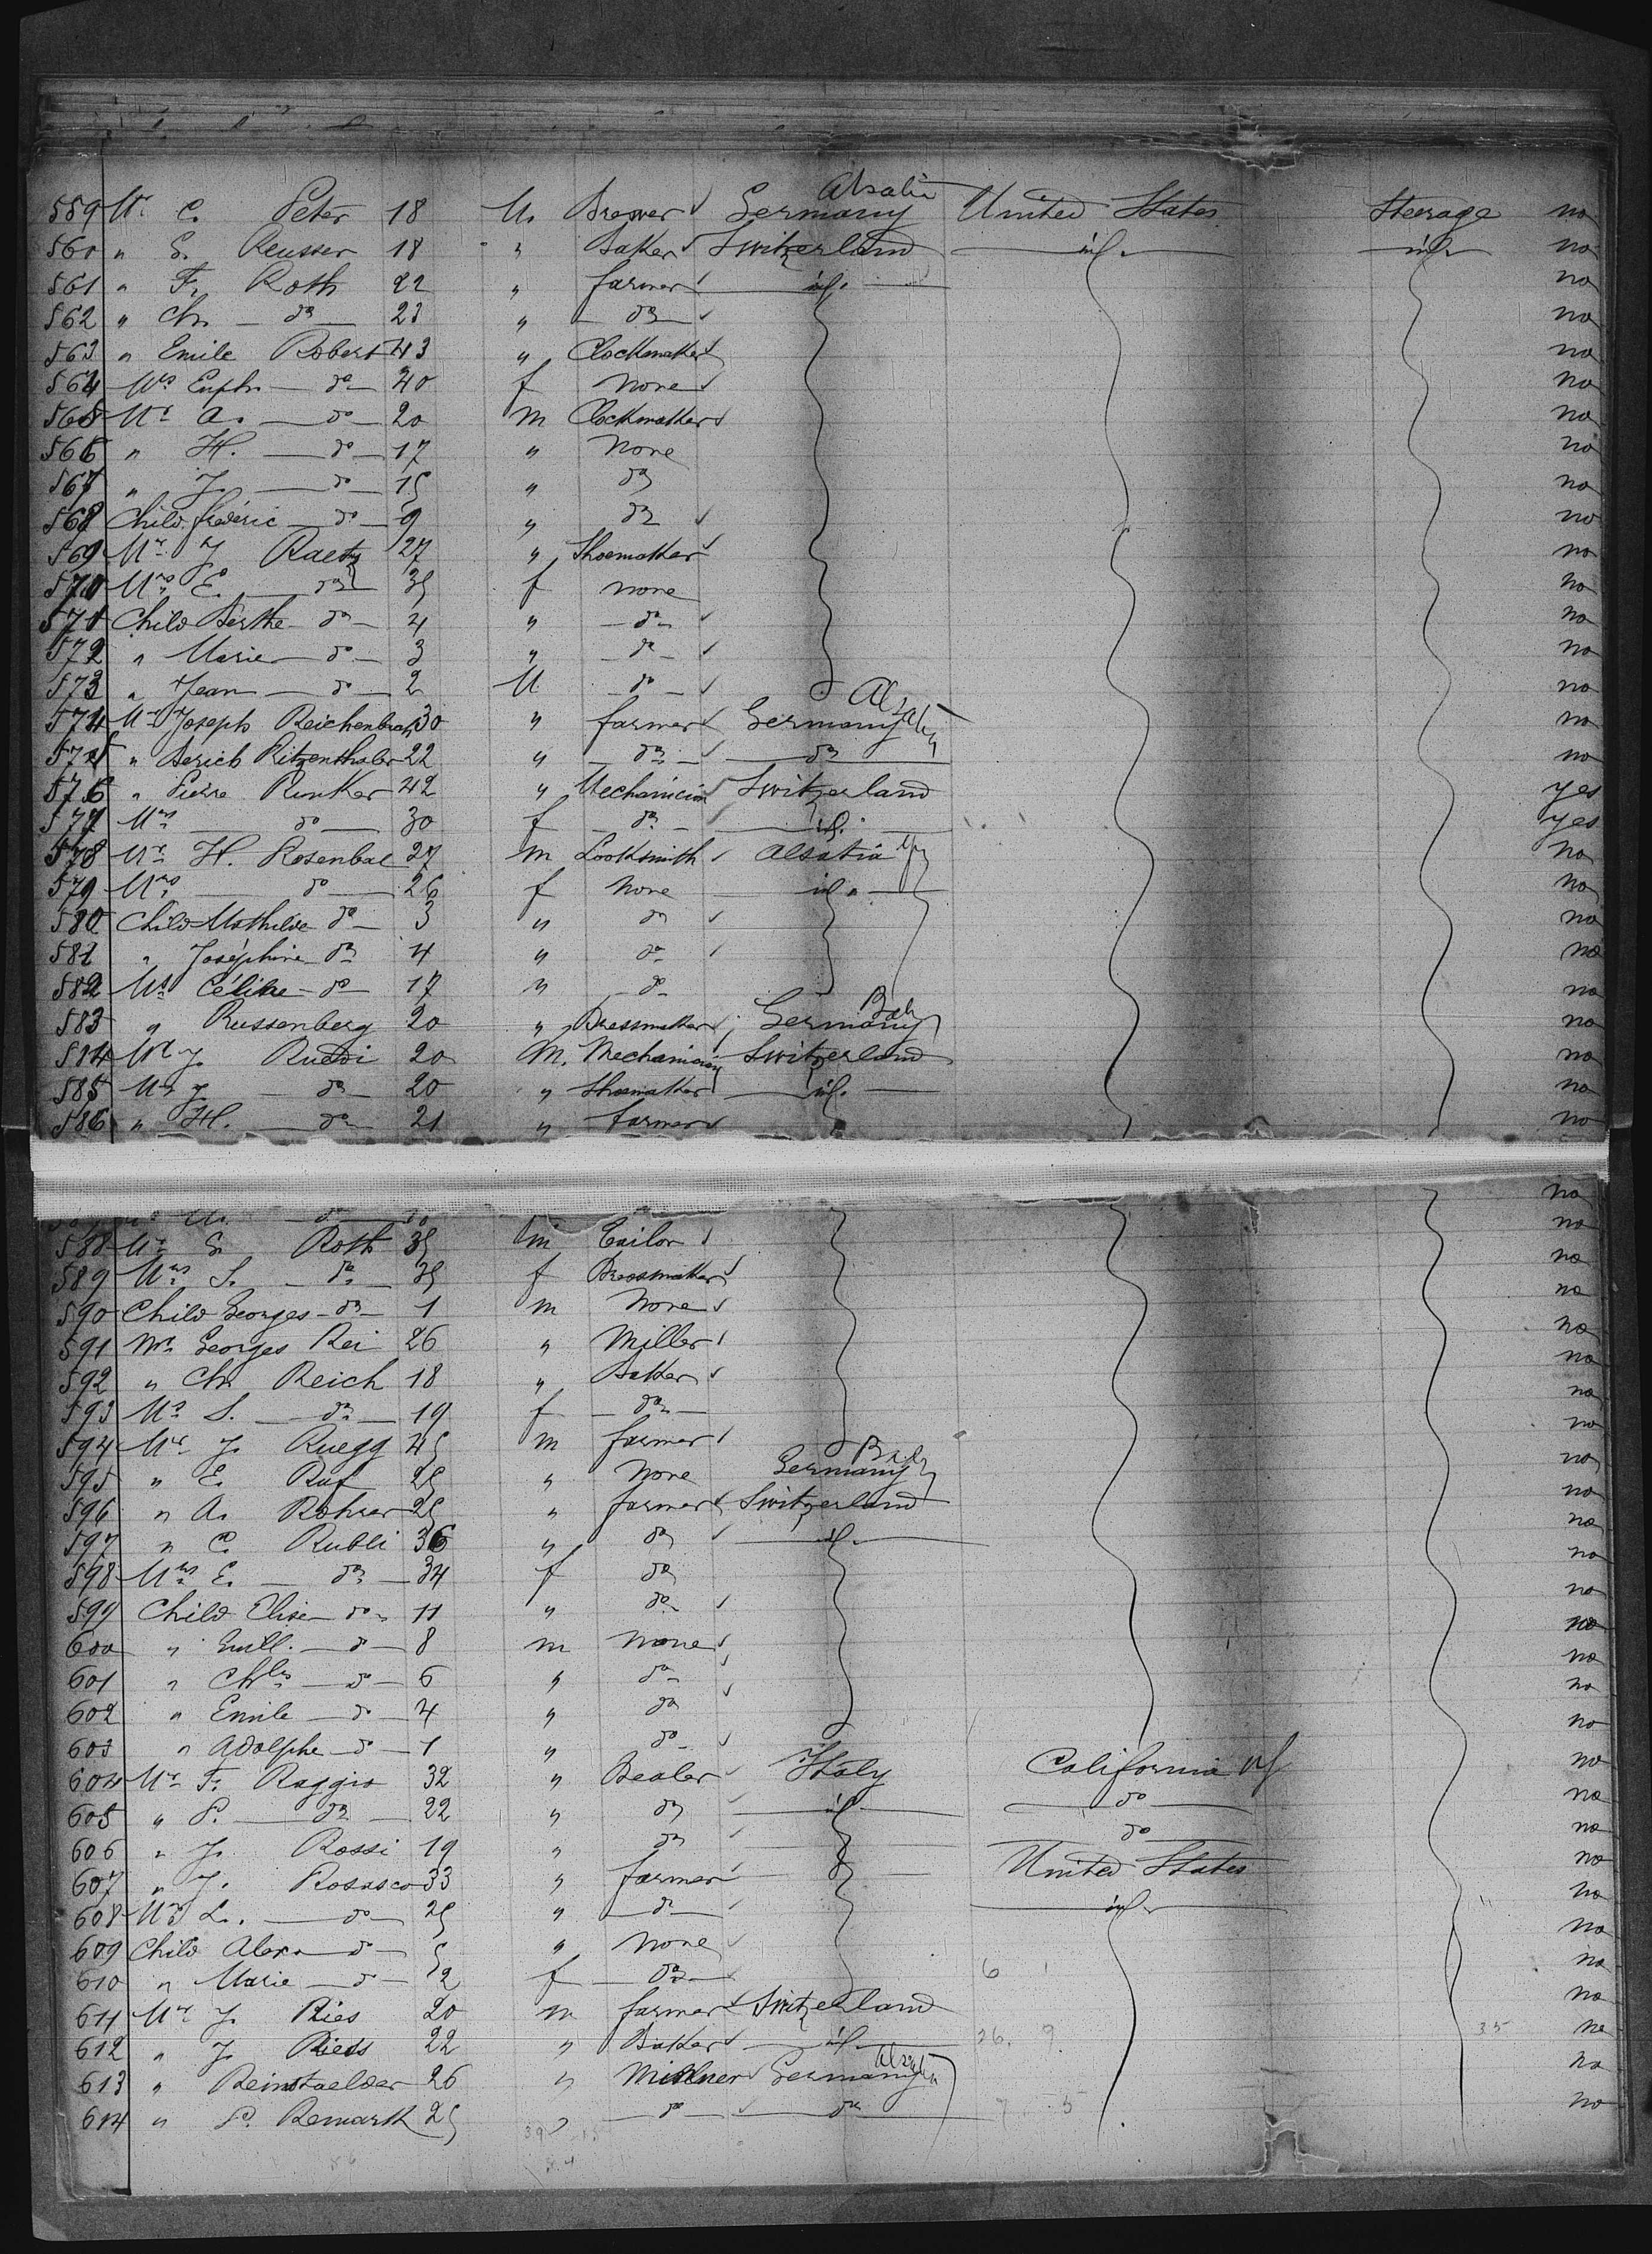 Alsatia
559 Mr. C. Peter 18 M. Brewer Germany United States Steerage no
560 " G. Reusser 18 " Baker Switzerland id. id. no
561 " Fr. Roth 22 " farmer id. no
562 " Ch. do 23 " do no
563 " Emile Robert 43 " Clockmaker no
564 Mrs Euph. do 40 f None no
565 Mr A. do 20 m Clockmaker no
566 " H. do 17 " None no
567 " J. do 15 " do no
568 Child fréderic do 9 " do no
569 Mr J Raetz 27 " Shoemaker no
570 Mrs E. do 35 f none no
571 Child Berthe do 4 " do no
572 " Marie do 3 " do no
573 " Jean do 2 M do no
574 Mr Joseph Reichenbach 30 " farmer Germany Alsatia no
575 " Ritzenthaler 22 " do do no
576 " Pierre Runker 42 " Mechanician Switzerland yes
577 Mrs do 30 f do id. yes
578 Mr H. Rosenbal 27 m Locksmith Alsatia no
579 Mrs do 26 f None id. no
580 Child Mathilde do 3 " do no
581 " Joséphine do 4 " do no
582 Ms Céline do 17 " do no
583 " Russenberg 20 " Dressmaker Germany no
584 Mr J. Ruedi 20 M. Mechanician Switzerland no
585 Mr J. do 20 " Shoemaker id. no
586 " H. do 21 " farmer no
do no
588 Mr G. Roth 35 m Tailor no
589 Mrs S. do 35 f Dressmaker no
590 Child Georges do 1 m None no
591 Mr Georges Rei 26 " Miller no
592 " Ch. Reich 18 " Baker no
593 Ms S. do 19 f do no
594 Mr J. Ruegg 45 m farmer no
595 " E. Ruf 25 " None Germany no
596 " A. Rohrer 25 " farmer Switzerland no
597 " C. Rubli 36 " do id. no
598 Mrs E. do 34 f do no
599 Child Elise do 11 " do no
600 " Guill. do 8 m none no
601 " Chles do 6 " do no
602 " Emile do 4 " do no
603 " Adolphe do 1 " do no
604 Mr F. Raggio 32 " Dealer Italy California no
605 " P. do 22 " do id do no
606 " J. Rossi 19 " do do no
607 " J. Rosasco 33 " farmer United States no
608 Mrs L. do 25 " do id. no
609 Child Alex. do 5 " none no
610 " Marie do 2 f do no
611 Mr J. Ries 20 m farmer Switzerland no
612 " J. Rieds 22 " Baker id. no
613 " Reinstaelder 26 " Germany Alsatia no
614 " P. Remark 25 " do do no